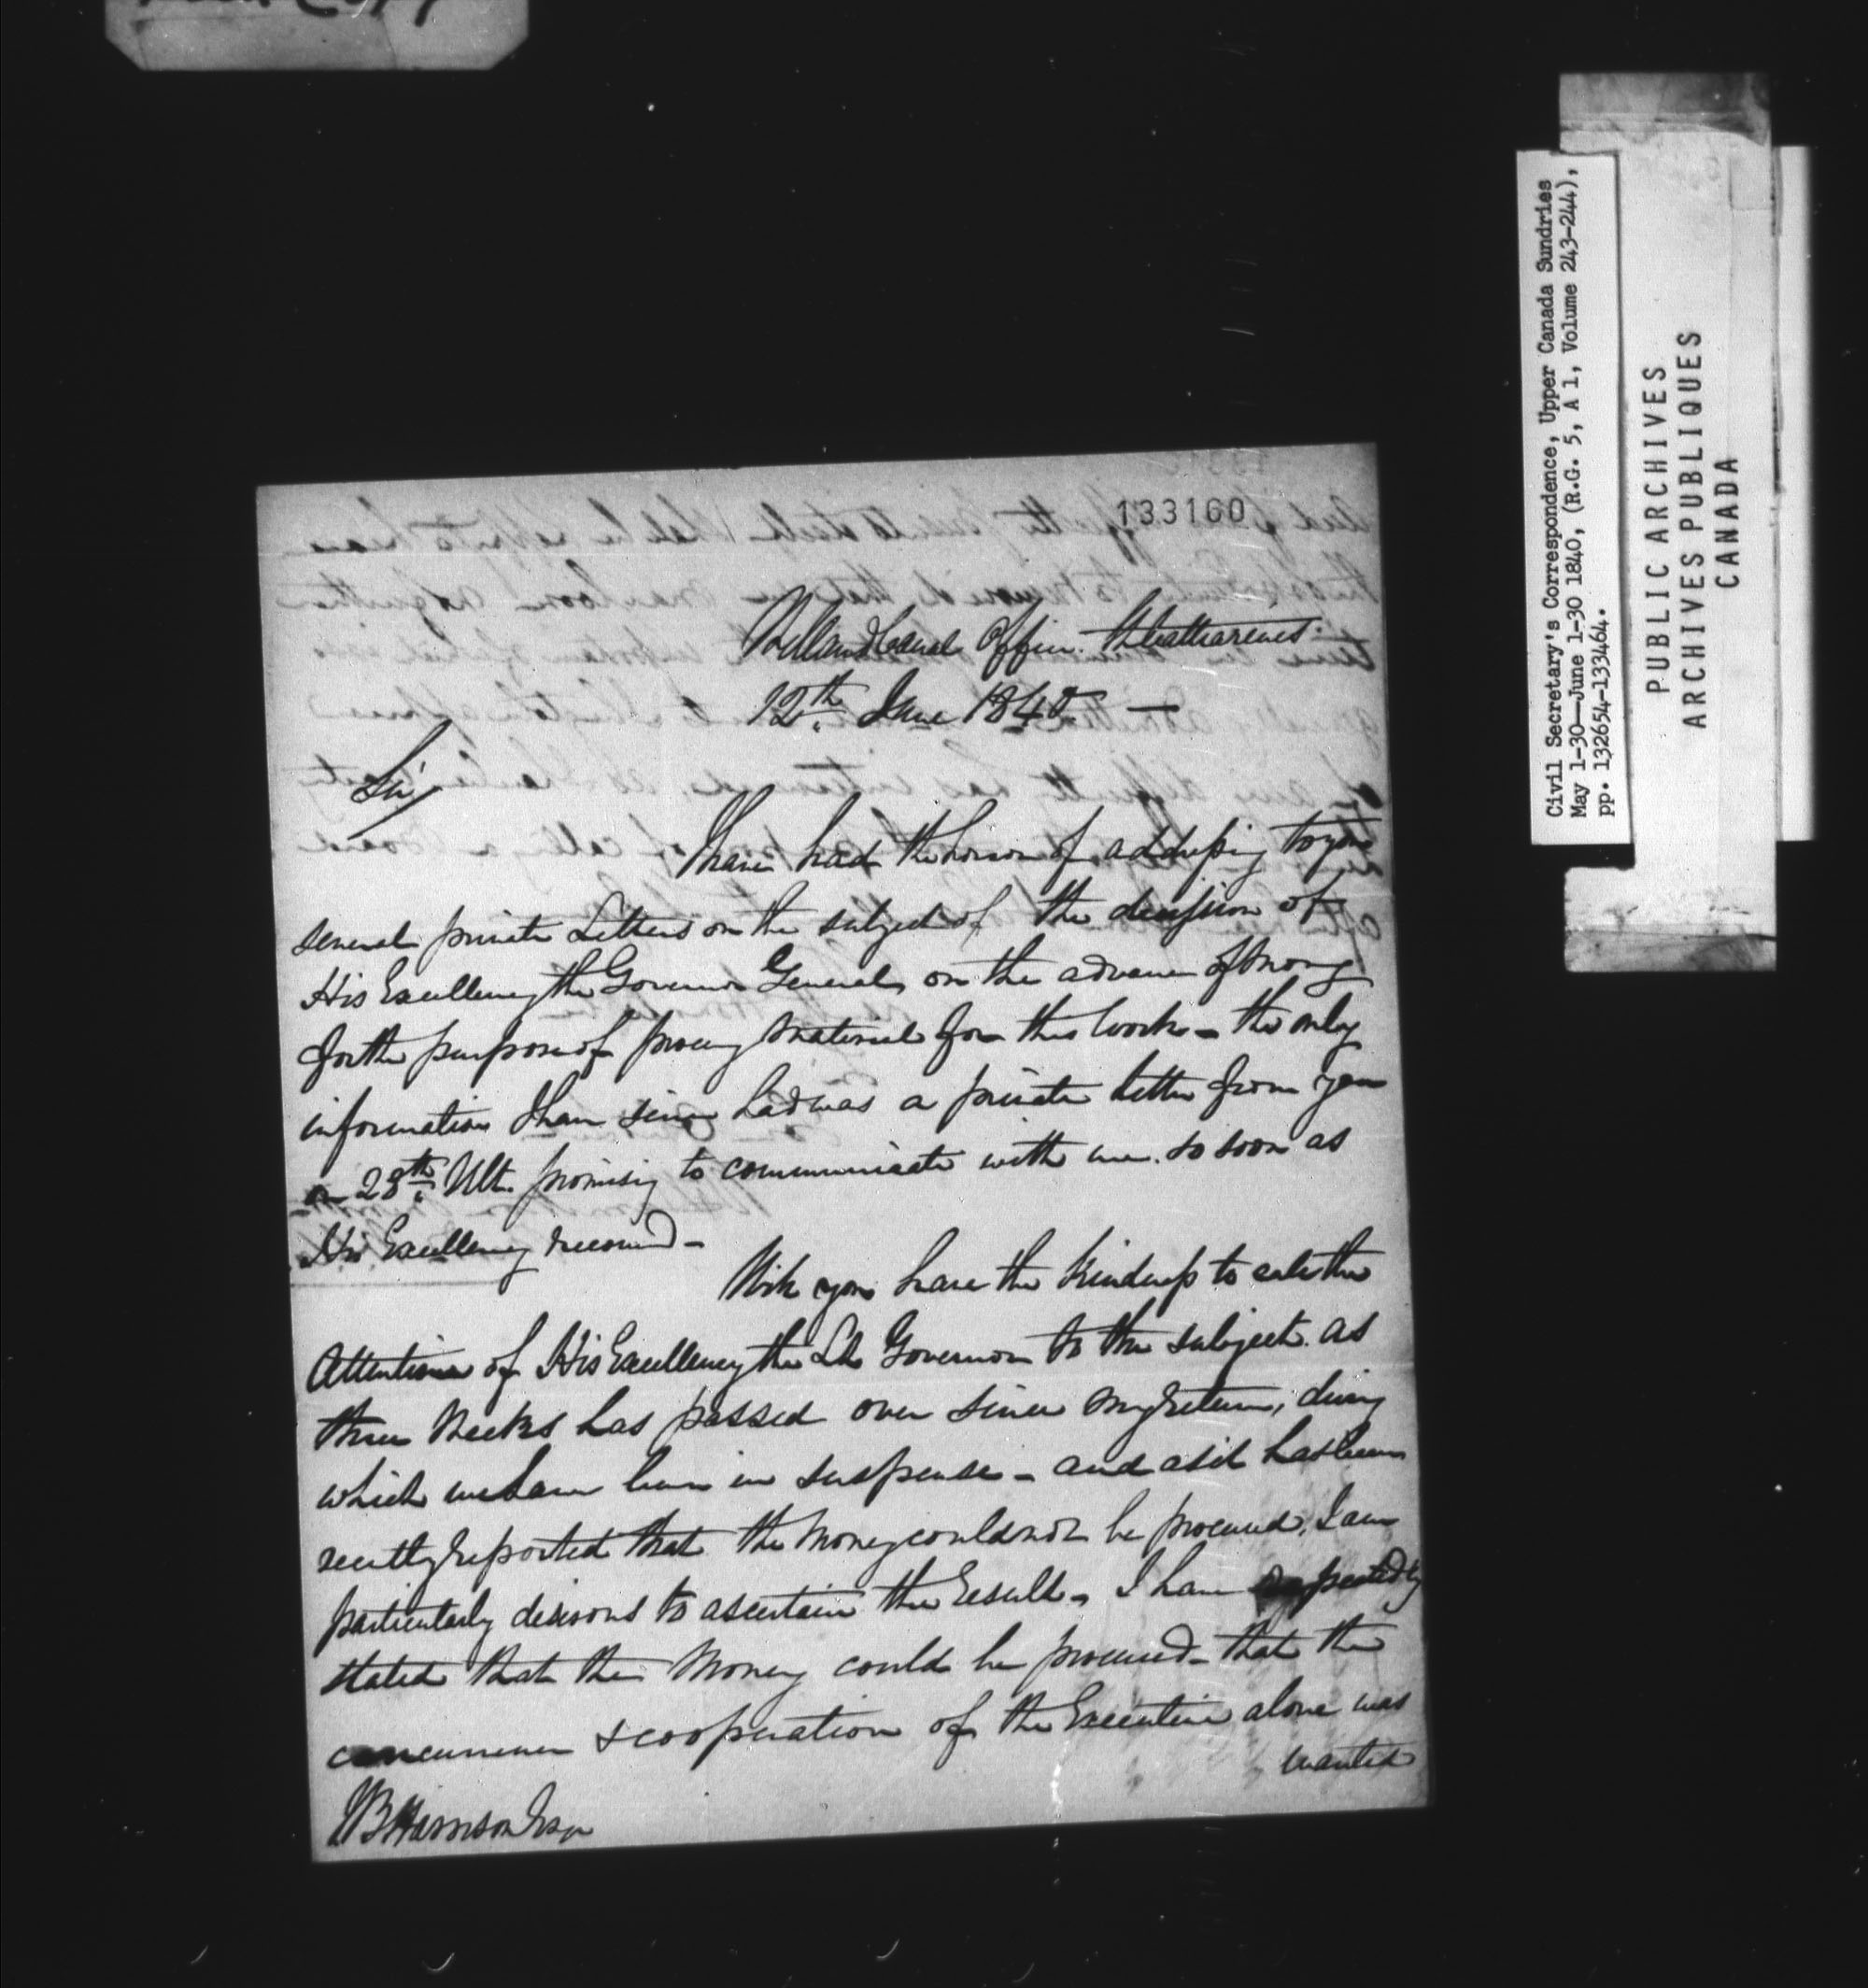 133160
Welland Canal Office St Catharines
12th June 1840 —
Sir
I have had the honor of addressing to you
several private Letters on the subject of the decision of
His Excellency the Governor General, on the advance of money
for the purpose of procuring material for this work – the only
information I have since had was a private letter from you
on 28th Ult. promising to communicate with me so soon as
His Excellency
Will you have the kindness to call the
Attention of His Excellency the Lt Governor to the subject. as
three Weeks has passed over since my return, during
which we have been in suspense – and as it has been
recently reported that the money could not be procured, I am
particularly desirous to ascertain the result – I have repeatedly
stated that the money could be procured – that the
concurrence & cooperation of the Executive alone was
wanted
Harrison Esqr
Civil Secretary's Correspondence, Upper Canada Sundries
May 1-30—June 1-30 1840, (R.G. 5, A 1, Volume 243-244),
pp. 132654-133464.
PUBLIC ARCHIVES
ARCHIVES PUBLIQUES
CANADA